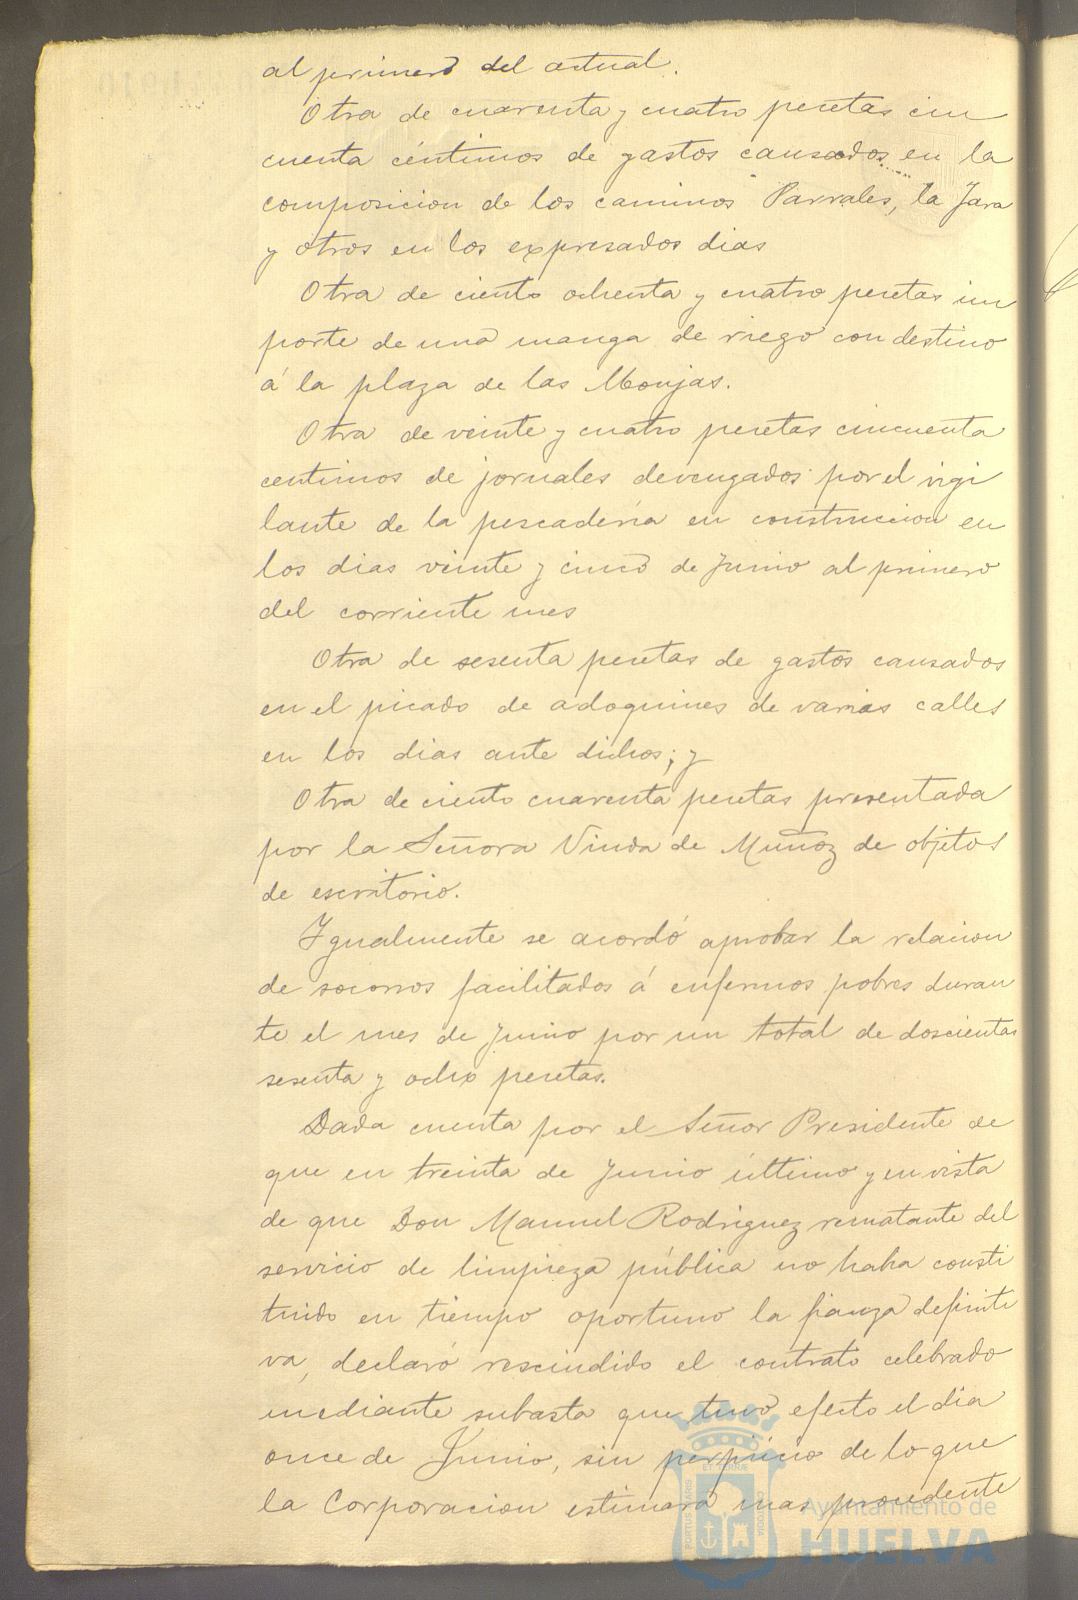 al primero del actual.
Otra de cuarenta y cuatro pesetas cin
cuenta céntimos de gastos causados en la
composicion de los caminos Parrales, la Jara
y otros en los expresados dias
Otra de ciento ochenta y cuatro pesetas im
porte de una manga de riego con destino
á la plaza de las Monjas.
Otra de veinte y cuatro pesetas cincuenta
centimos de jornales devengados por el vigi
lante de la pescadería en construccion en
los dias veinte y cinco de Junio al primero
del corriente mes
Otra de sesenta pesetas de gastos causados
en el picado de adoquines de varias calles
en los dias ante dichos; y
Otra de ciento cuarenta pesetas presentada
por la Señora Viuda de Muñoz de objetos
de escritorio.
Igualmente se acordó aprobar la relacion
de socorros facilitados á enfermos pobres duran
te el mes de Junio por un total de doscientas
sesenta y ocho pesetas.
Dada cuenta por el Señor Presidente de
que en treinta de Junio último y en vista
de que Don Manuel Rodriguez rematante del
servicio de limpieza pública no habia consti
tuido en tiempo oportuno la fianza definiti
va, declaró rescindido el contrato celebrado
mediante subasta que tuvo efecto el dia
once de Junio, sin perjuicio de lo que
la Corporacion estimara mas procedente
Ayuntamiento de
HUELVA
PORTUS MARIS
ET TERRAE
CUSTODIA